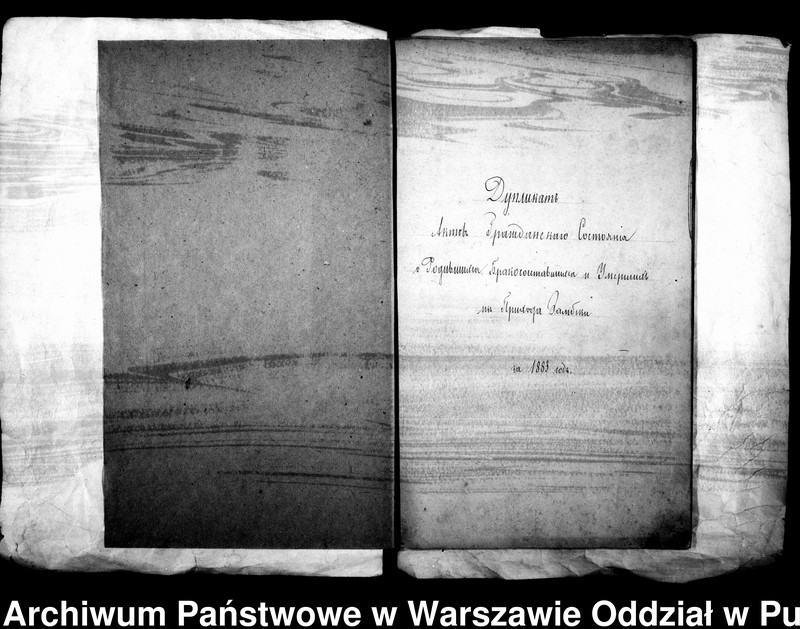 Дупликатъ
Актов Гражданскаго Состоянія
о Родившихся Бракосочетавшихся и Умершихъ
на Прихода Замбски
за 1883 годъ.
Archiwum Państwowe w Warszawie Oddział w Pu